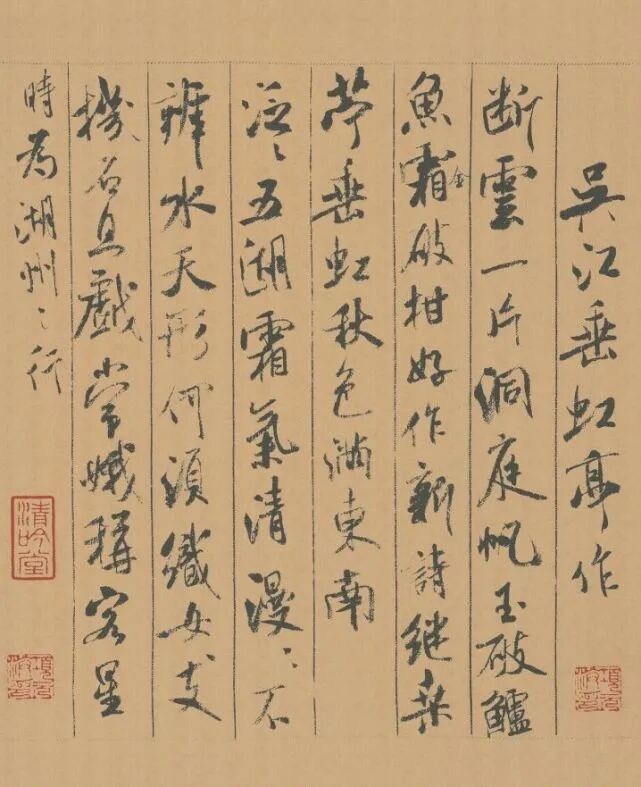 吳江垂虹亭作
断雲一片洞庭帆玉破鱸
魚霜金破柑好作新詩继桒
苧垂虹秋色満東南
泛〻五湖霜氣清漫〻不
辨水天形何須織女支
機石且戲常娥稱客星
時為湖州〻行
清吟堂